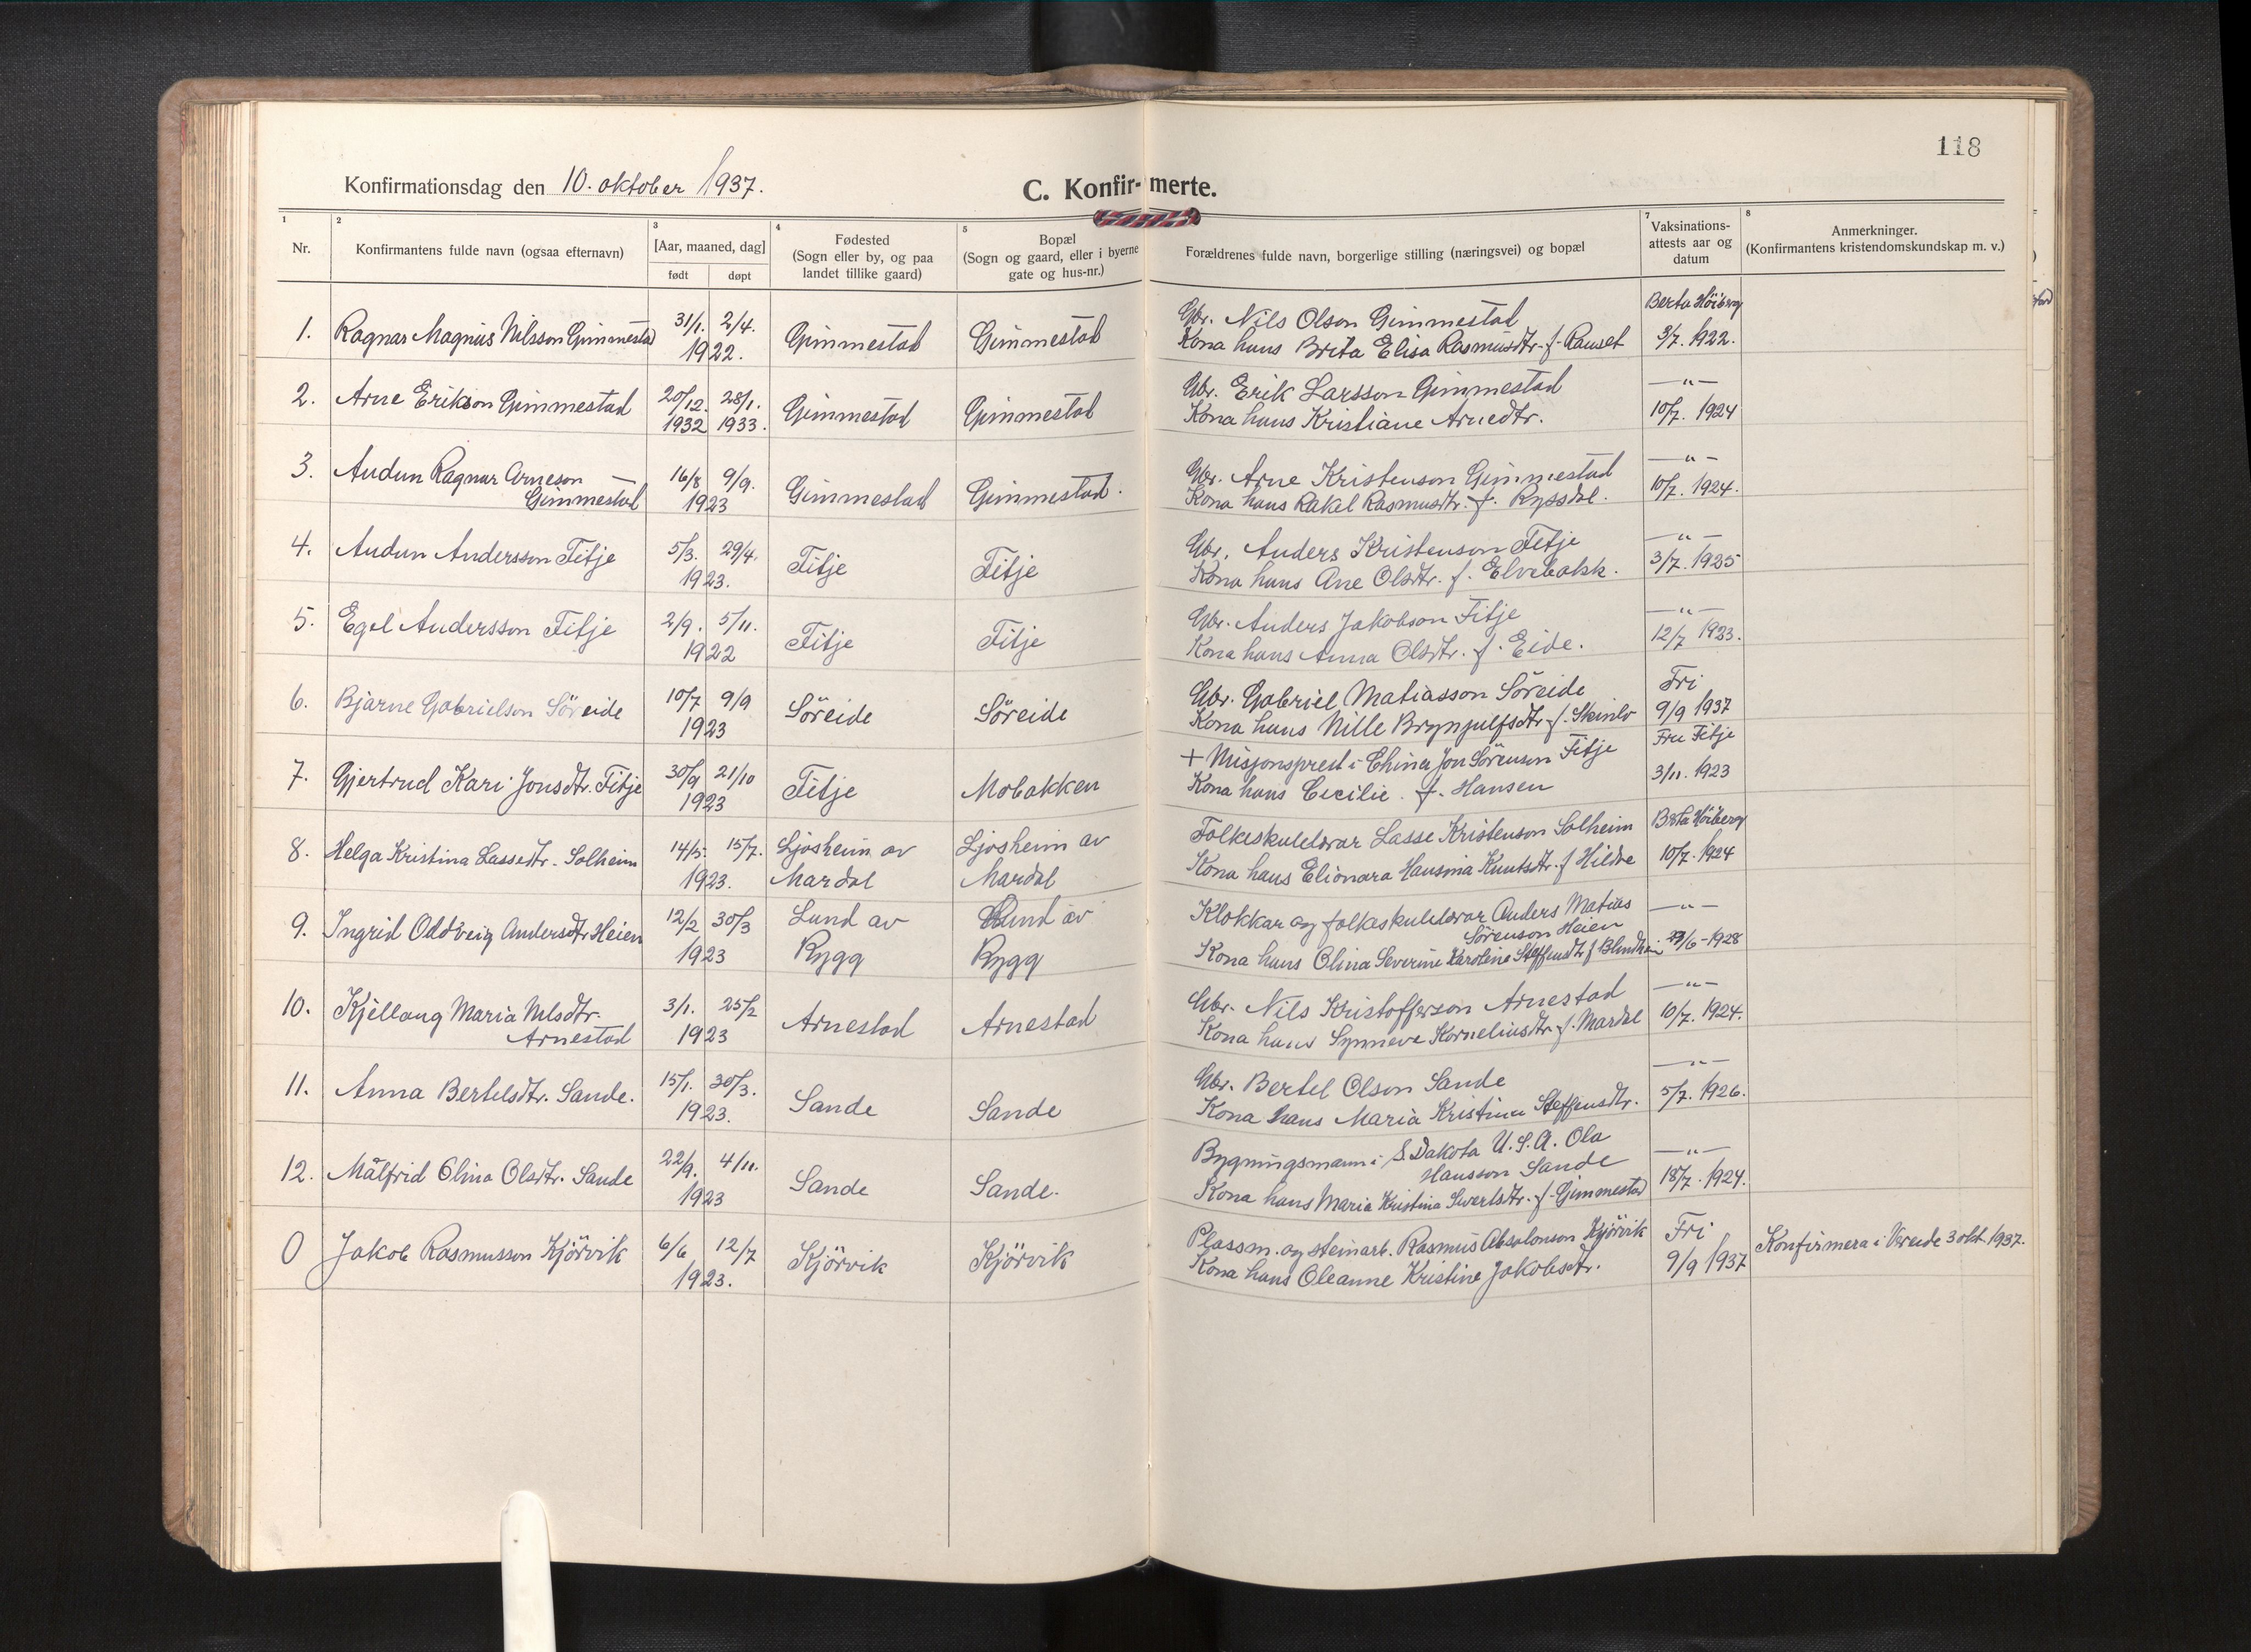 118
Konfirmationsdag den 10. oktober 1937.
C. Konfir- merte.
1 2 3 4 5 7 8
Nr.
Konfirmantens fulde navn (ogsaa efternavn)
[Aar, maaned, dag]
født døpt
Fødested
(Sogn eller by, og paa
landet tillike gaard)
Bopæl
(Sogn og gaard, eller i byerne
gate og hus-nr.)
Forældrenes fulde navn, borgerlige stilling (næringsvei) og bopæl
Vaksinations-
attests aar og
datum
Anmerkninger.
(Konfirmantens kristendomskundskap m. v.)
1. Ragnar Magnus Nilsson Gimmestad 31/1. 2/4. 1922. Gimmestad Gimmestad
Gbr. Nils Olson Gimmestad
Kona hans Brita Elisa Rasmusdtr. f. Rauset
Berta Höiberg
3/7. 1922.
2. Arne Erikson Gimmestad 20/12. 1932 28/1. 1933. Gimmestad Gimmestad
Gbr. Erik Larsson Gimmestad
Kona hans Kristiane Arnedtr.
—"—
10/7. 1924
3. Audun Ragnar Arneson
Gimmestad
16/8 9/9. 1923 Gimmestad Gimmestad.
Gbr. Arne Kristenson Gimmestad
Kona hans Rakel Rasmusdtr. f. Ryssdal.
—"—
10/7. 1924.
4. Audun Andersson Fitje 5/3. 29/4. 1923. Fitje Fitje
Gbr. Anders Kristenson Fitje
Kona hans Ane Olsdtr. f. Elvebakk.
—"—
3/7. 1925
5. Egil Andersson Fitje 2/9. 5/11. 1922 Fitje Fitje
Gbr. Anders Jakobson Fitje
Kona hans Anna Olsdtr. f. Eide.
—"—
12/7 1923.
6. Bjarne Gabrielson Söreide 10/7 9/9 1923 Söreide Söreide
Gbr. Gabriel Matiasson Söreide
Kona hans Nille Brynjulfsdtr. f. Skinlo
Fri
9/9 1937
7. Gjertrud Kari Jonsdtr. Fitje 30/9 21/10 1923 Fitje Mobakken
+ Misjonsprest i China Jon Sörenson Fitje
Kona hans Cecilie f. Hansen
Fru Fitje
3/11. 1923
8. Helga Kristina Lassedtr. Solheim 14/5. 15/7. 1923. Ljosheim av
Mardal
Ljosheim av
Mardal
Folkeskulelærar Lasse Kristenson Solheim
Kona hans Elionora Hansina Knutsdtr. f Hildre
Berta Höiberg
10/7. 1924
9. Ingrid Oddveig Andersdtr Heien 12/2 30/3 1923 Lund av
Rygg
Lund av
Rygg
Klokkar og folkeskulelærar Anders Matias
Sörenson Heien
Kona hans Olina Severine Karoline Steffensdtr f Blindheim
—"—
23/6-1928
10. Kjellaug Maria Nilsdtr.
Arnestad
3/1. 25/2 1923 Arnestad Arnestad
Gbr. Nils Kristofferson Arnestad
Kona hans Synneve Korneliusdtr. f. Mardal
—"—
10/7. 1924.
11. Anna Bertelsdtr. Sande. 15/1. 30/3. 1923. Sande Sande
Gbr. Bertel Olson Sande
Kona hans Maria Kristina Steffensdtr.
—"—
5/7. 1926.
12. Målfrid Olina Olsdtr. Sande 22/9. 4/11. 1923 Sande Sande.
Bygningsmann i S. Dakota U.S.A. Ola
Hansson Sande
Kona hans Maria Kristina Sivertsdtr. f. Gimmestad
—"—
18/7. 1924.
0 Jakob Rasmusson Kjörvik 6/6 12/7 1923. Kjörvik Kjörvik
Plassm. og steinarb. Rasmus Absalonson Kjörvik
Kona hans Oleanne Kristine Jakobsdtr.
Fri
9/9 1937
Konfirmera i Vereide 3 okt. 1937.